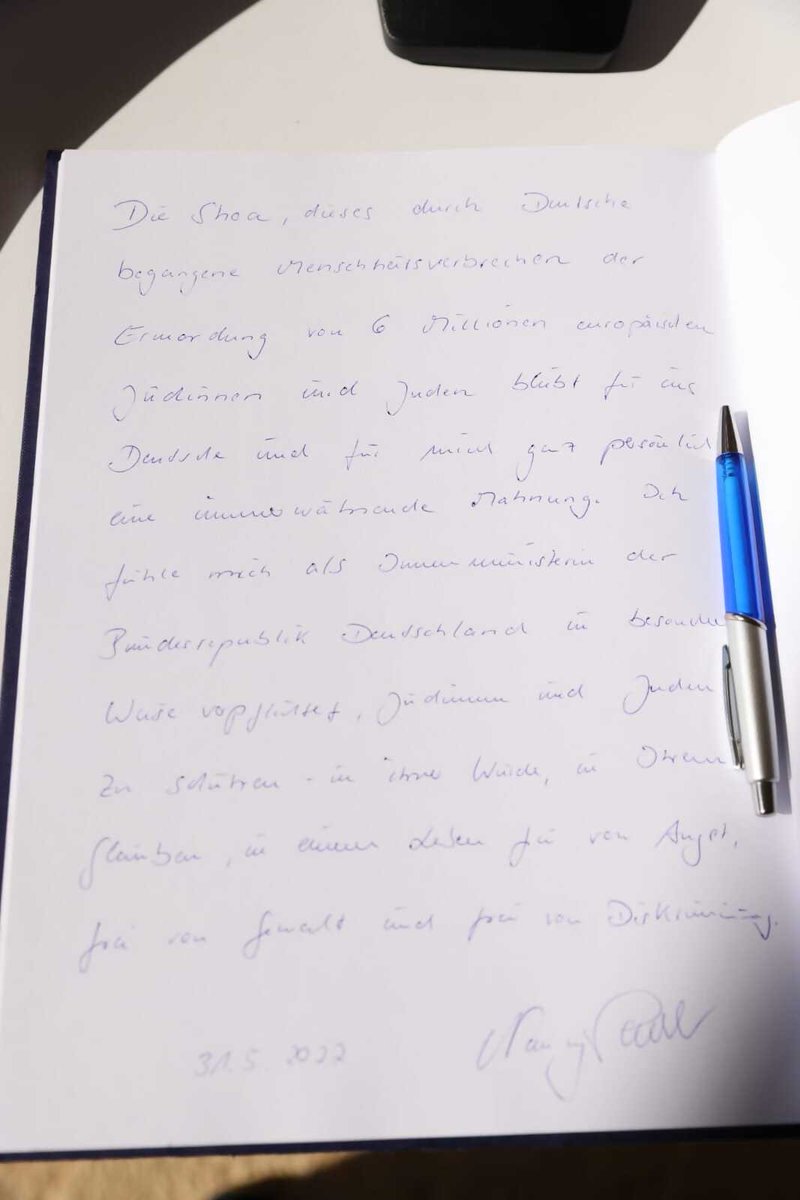 Die Shoa, dieses durch Deutsche
begangene Menschheitsverbrechen der
Ermordung von 6 Millionen europäischen
Jüdinnen und Juden bleibt für uns
Deutsche und für mich ganz persönlich
eine immerwährende Mahnung. Ich
fühle mich als Innenministerin der
Bundesrepublik Deutschland in besonderer
Weise verpflichtet, Jüdinnen und Juden
zu schützen - in ihrer Würde, in Ihrem
Glauben, in einem Leben frei von Angst,
frei von Gewalt und frei von Diskriminierung.
31.5.2022 Nancy Faeser